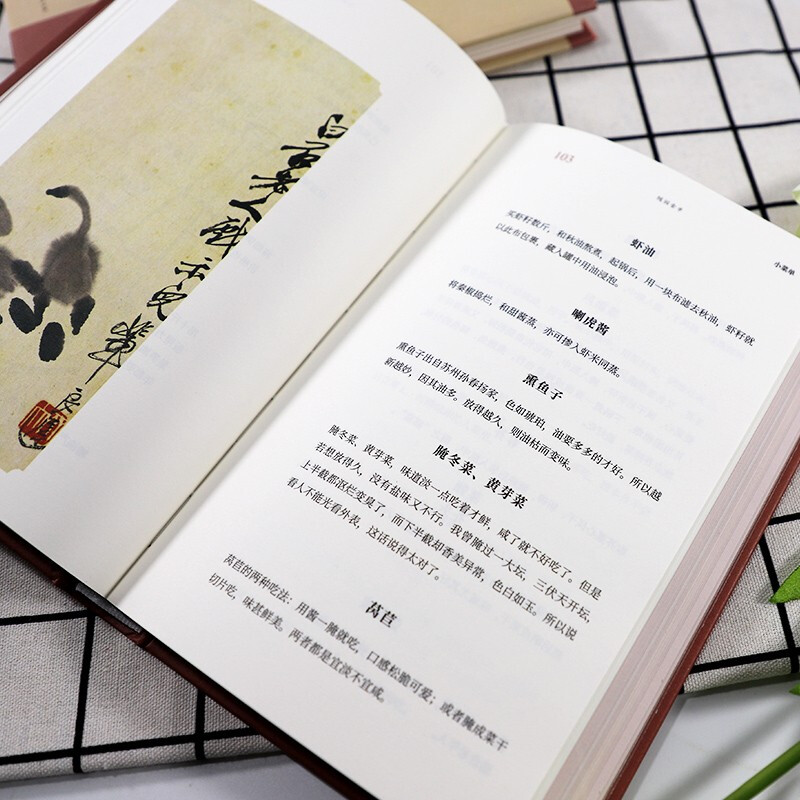 白石老人戏示儿辈
103
随园食单
小菜单
虾油
买虾籽数斤，和秋油熬煮，起锅后，用一块布滤去秋油，虾籽就
以此布包裹，藏入罐中用油浸泡。
喇虎酱
将秦椒捣烂，和甜酱蒸，亦可掺入虾米同蒸。
熏鱼子
熏鱼子出自苏州孙春扬家，色如琥珀，油要多多的才好。所以越
新越妙，因其油多。放得越久，则油枯而变味。
腌冬菜、黄芽菜
腌冬菜、黄芽菜，味道淡一点吃着才鲜，咸了就不好吃了。但是
若想放得久，没有盐味又不行。我曾腌过一大坛，三伏天开坛，
上半截都沤烂变臭了，而下半截却香美异常，色白如玉。所以说
看人不能光看外表，这话说得太对了。
莴苣
莴苣的两种吃法：用酱一腌就吃，口感松脆可爱；或者腌成菜干
切片吃，味甚鲜美。两者都是宜淡不宜咸。